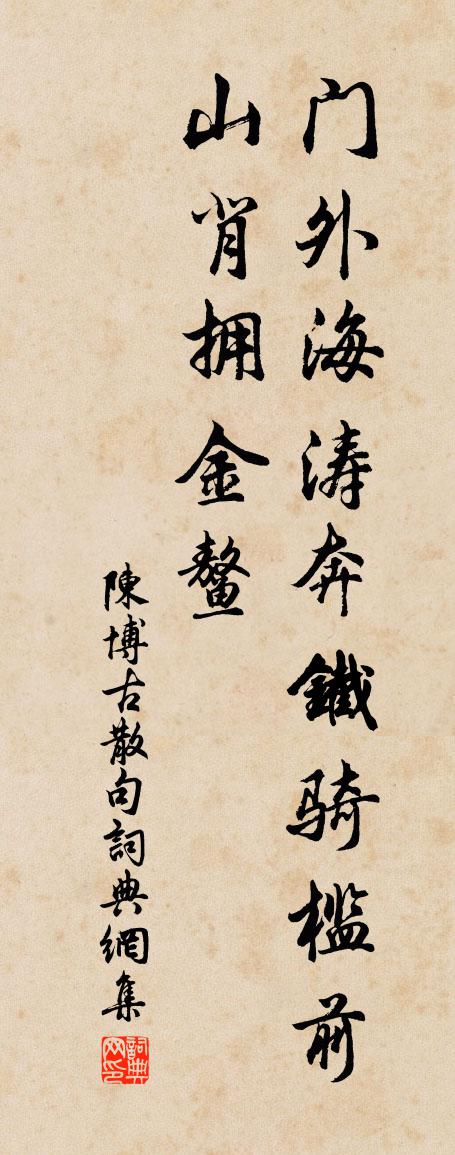 门外海涛奔鐵骑槛前
山背拥金鳌
陳博古散句詞典網集
詞典网印